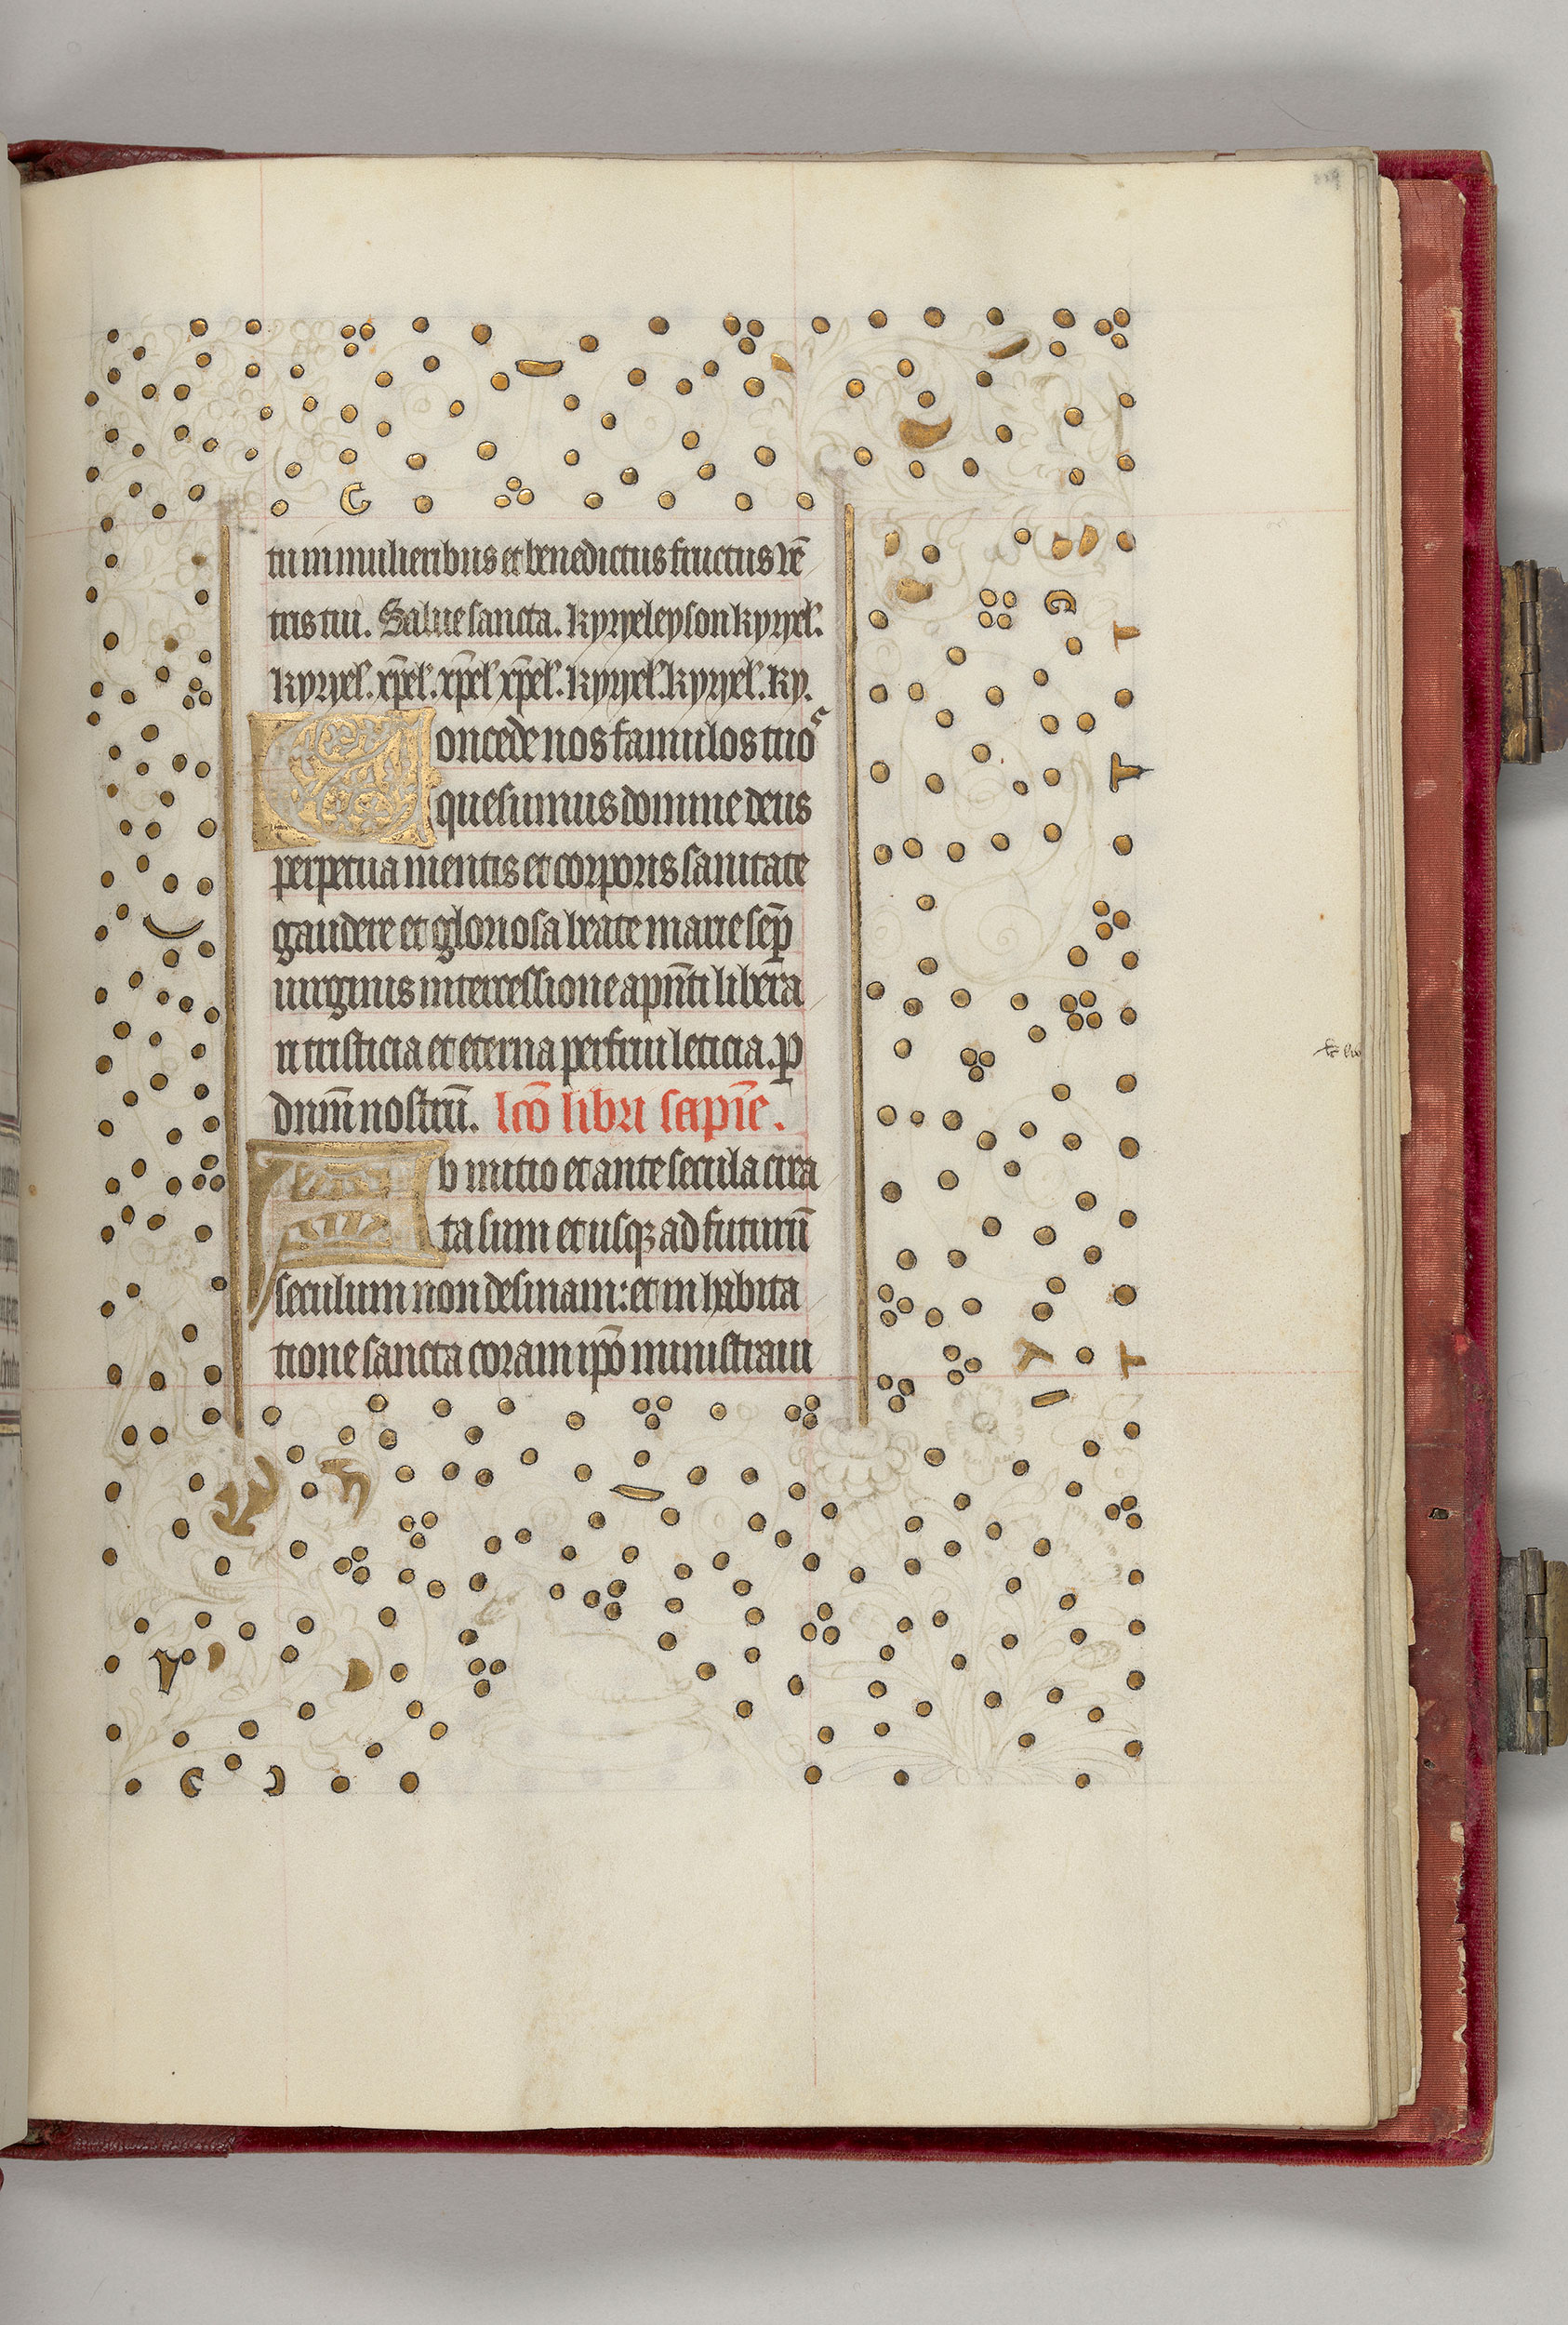 tu in mulieribus et benedictus fructus vē
tris tui. Salue sancta. kyryeleyson kyryel'.
kyryel'. xp̄el'. xp̄el' xp̄el'. kyryel'. kyryel'. ky.
Concede nos famulos tuos
quesumus domine deus
perpetua mentis et corporis sanitate
gaudere et gloriosa beate marie semp̄
uirginis intercessione a pn̄ti libera
ri tristicia et eterna perfrui leticia. p
dnm̄ nostrū. lc̄o libri sapīe.
Ab initio et ante secula crea
ta sum et usqꝫ ad futurū
seculum non desinam: et in habita
tione sancta coram ip̄o ministraui